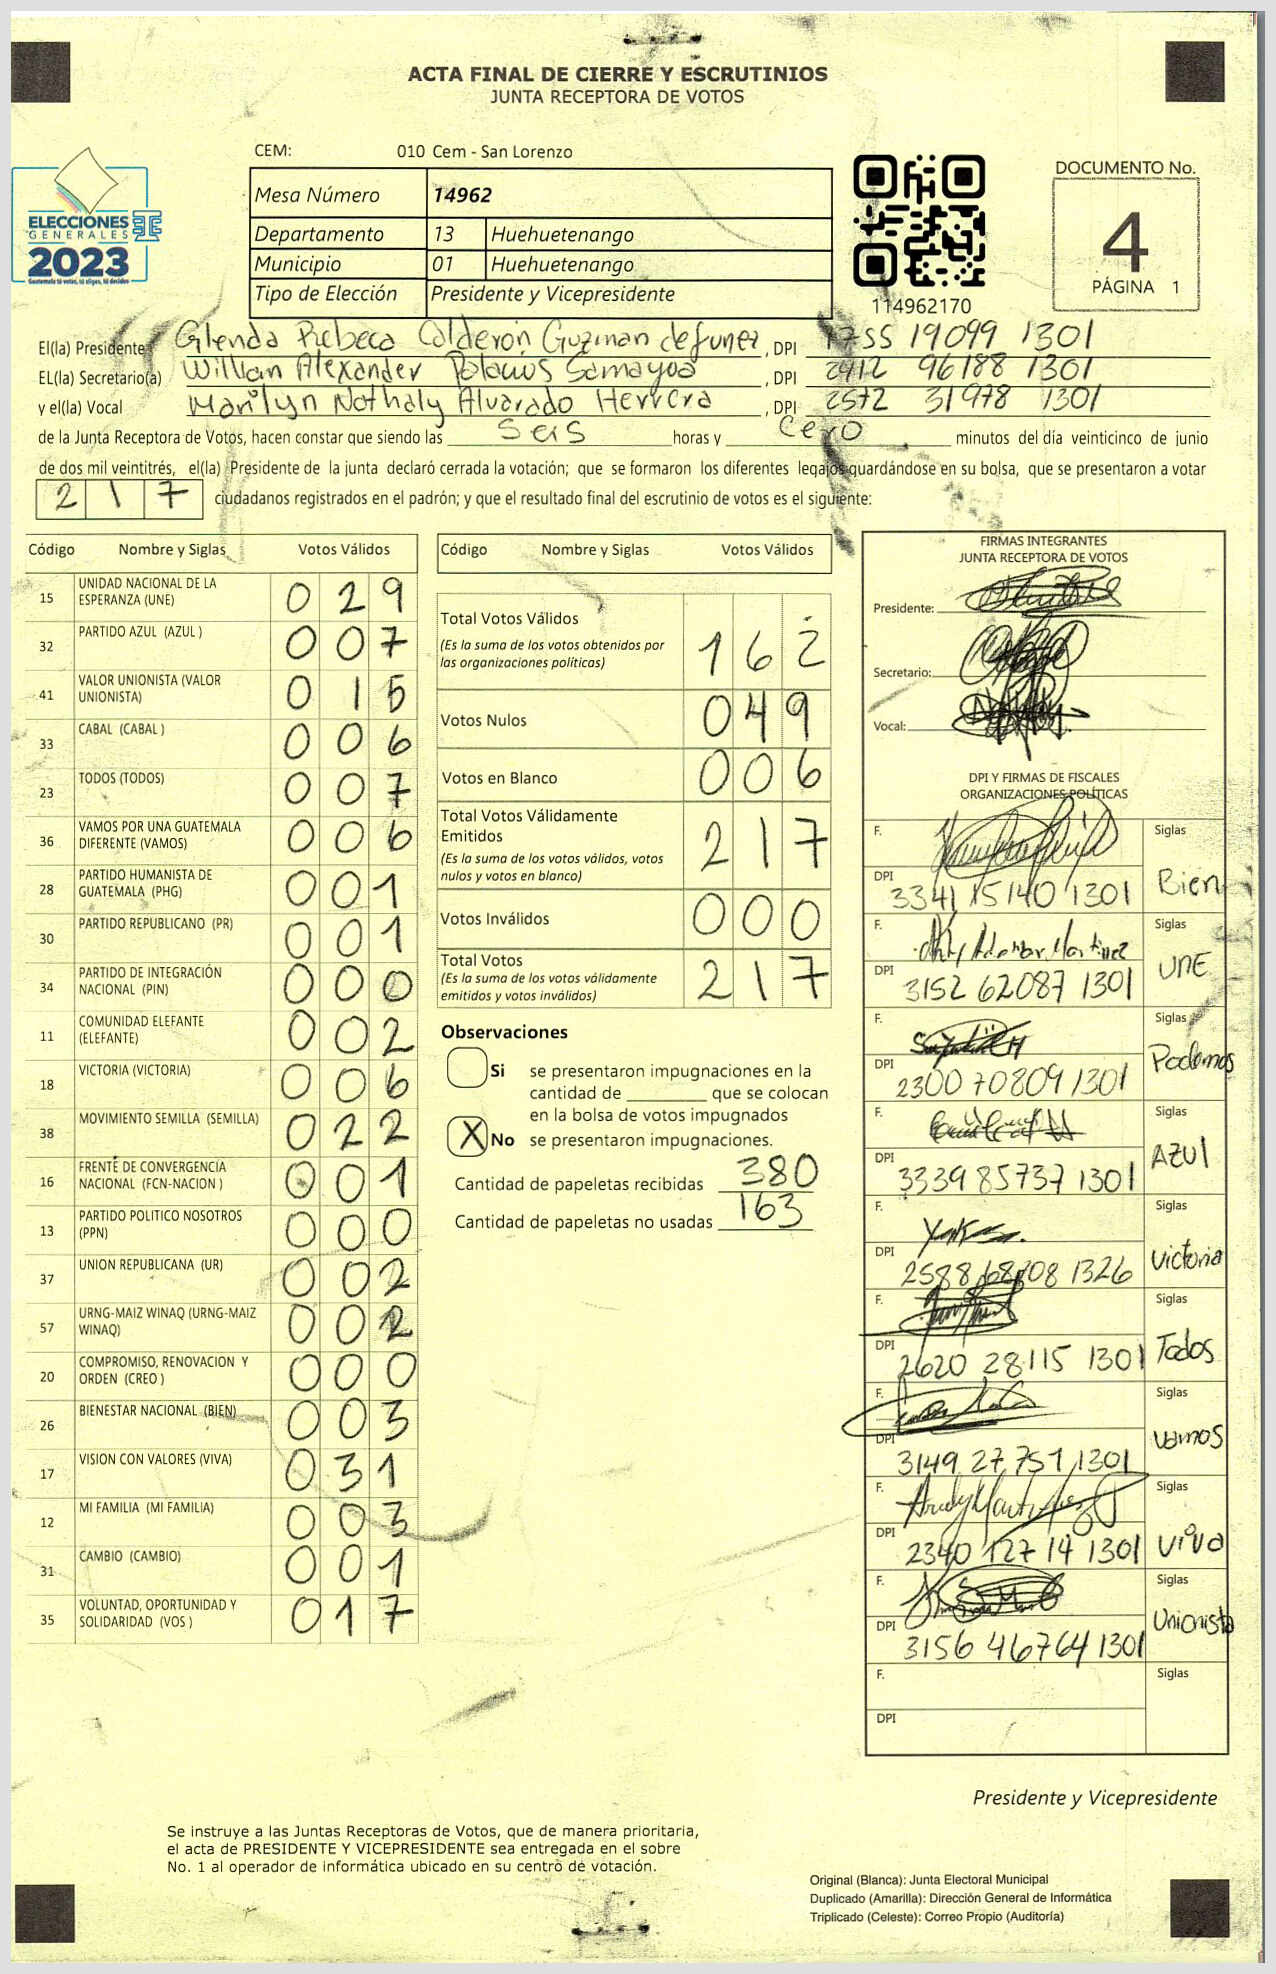 ACTA FINAL DE CIERRE Y ESCRUTINIOS
JUNTA RECEPTORA DE VOTOS
CEM: 010 Cem - San Lorenzo
Mesa Número 14962
Departamento 13 Huehuetenango
Municipio 01 Huehuetenango
Tipo de Elección Presidente y Vicepresidente
ELECCIONES
GENERALES
2023
Guatemala tú votas, tú eliges, tú decides
114962170
DOCUMENTO No.
4
PÁGINA 1
El(la) Presidente Glenda Rebeca Calderón Guzman de Funez, DPI 1755 19099 1301
EL(la) Secretario(a) Willian Alexander Palacios Samayoa, DPI 2912 96188 1301
y el(la) Vocal Marilyn Nathaly Alvarado Herrera, DPI 2572 31978 1301
de la Junta Receptora de Votos, hacen constar que siendo las seis horas y cero minutos del día veinticinco de junio
de dos mil veintitrés, el(la) Presidente de la junta declaró cerrada la votación; que se formaron los diferentes legajos guardándose en su bolsa, que se presentaron a votar
217 ciudadanos registrados en el padrón; y que el resultado final del escrutinio de votos es el siguiente:
Código Nombre y Siglas Votos Válidos
15 UNIDAD NACIONAL DE LA ESPERANZA (UNE) 029
32 PARTIDO AZUL (AZUL ) 007
41 VALOR UNIONISTA (VALOR UNIONISTA) 015
33 CABAL (CABAL ) 006
23 TODOS (TODOS) 007
36 VAMOS POR UNA GUATEMALA DIFERENTE (VAMOS) 006
28 PARTIDO HUMANISTA DE GUATEMALA (PHG) 001
30 PARTIDO REPUBLICANO (PR) 001
34 PARTIDO DE INTEGRACIÓN NACIONAL (PIN) 000
11 COMUNIDAD ELEFANTE (ELEFANTE) 002
18 VICTORIA (VICTORIA) 006
38 MOVIMIENTO SEMILLA (SEMILLA) 022
16 FRENTE DE CONVERGENCIA NACIONAL (FCN-NACION ) 001
13 PARTIDO POLITICO NOSOTROS (PPN) 000
37 UNION REPUBLICANA (UR) 002
57 URNG-MAIZ WINAQ (URNG-MAIZ WINAQ) 002
20 COMPROMISO, RENOVACION Y ORDEN (CREO ) 000
26 BIENESTAR NACIONAL (BIEN) 003
17 VISION CON VALORES (VIVA) 031
12 MI FAMILIA (MI FAMILIA) 003
31 CAMBIO (CAMBIO) 001
35 VOLUNTAD, OPORTUNIDAD Y SOLIDARIDAD (VOS ) 017
Código Nombre y Siglas Votos Válidos
Total Votos Válidos 162
(Es la suma de los votos obtenidos por
las organizaciones políticas)
Votos Nulos 049
Votos en Blanco 006
Total Votos Válidamente
Emitidos 217
(Es la suma de los votos válidos, votos
nulos y votos en blanco)
Votos Inválidos 000
Total Votos 217
(Es la suma de los votos válidamente
emitidos y votos inválidos)
Observaciones
Si se presentaron impugnaciones en la
cantidad de ________ que se colocan
en la bolsa de votos impugnados
X No se presentaron impugnaciones.
Cantidad de papeletas recibidas 380
Cantidad de papeletas no usadas 163
FIRMAS INTEGRANTES
JUNTA RECEPTORA DE VOTOS
Presidente:
Secretario:
Vocal:
DPI Y FIRMAS DE FISCALES
ORGANIZACIONES POLÍTICAS
F. Siglas
DPI 3341 15140 1301 Bien
F. Siglas
DPI 3152 62087 1301 UNE
F. Siglas
DPI 2300 70809 1301 Podemos
F. Siglas
DPI 3339 85737 1301 AZUl
F. Siglas
DPI 1326 Victoria
F. Siglas
DPI 2620 28115 1301 Todos
F. Siglas
DPI 3149 27 751 1301 vamos
F. Siglas
DPI 2340 127 14 1301 viva
F. Siglas
DPI 3156 46764 1301 Unionista
F. Siglas
DPI
Presidente y Vicepresidente
Se instruye a las Juntas Receptoras de Votos, que de manera prioritaria,
el acta de PRESIDENTE Y VICEPRESIDENTE sea entregada en el sobre
No. 1 al operador de informática ubicado en su centro de votación.
Original (Blanca): Junta Electoral Municipal
Duplicado (Amarilla): Dirección General de Informática
Triplicado (Celeste): Correo Propio (Auditoría)